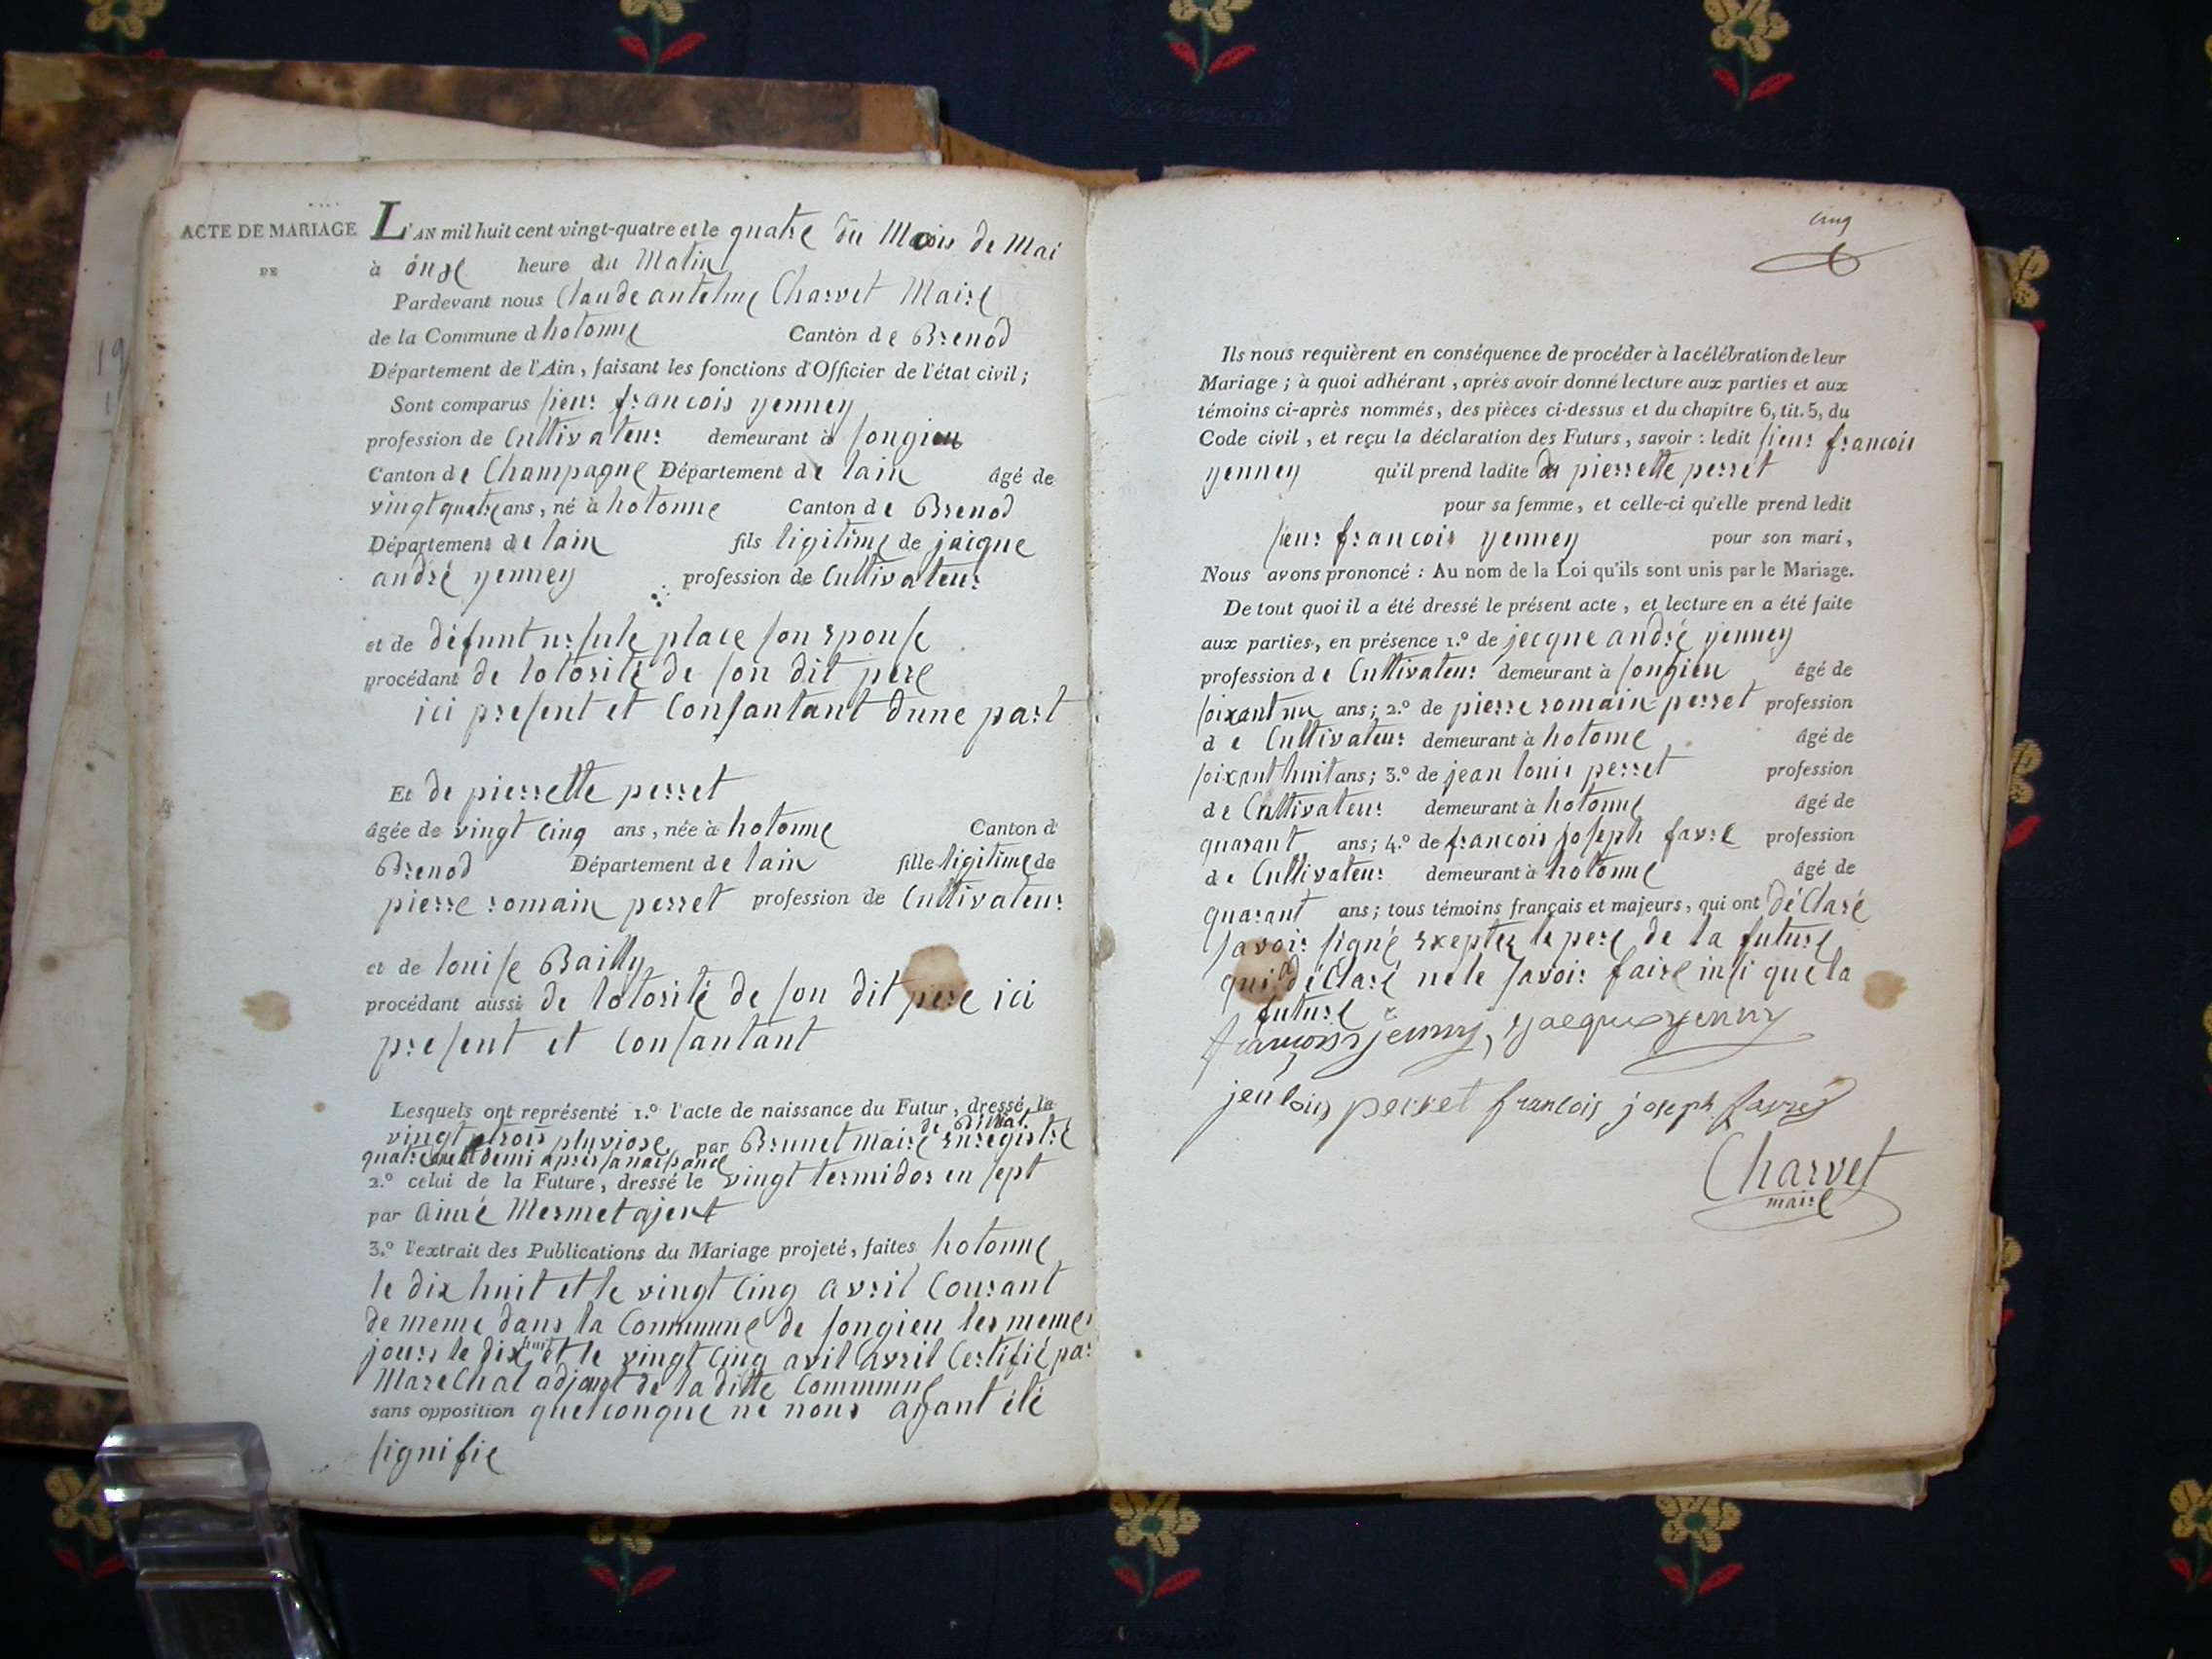 ACTE DE MARIAGE
DE
L'AN mil huit cent vingt-quatre et le quatre du Mois de Mai
à onze heure du Matin
Pardevant nous Claude antelme Charvet Maire
de la Commune d hotonne Canton de Brenod
Département de l'Ain, faisant les fonctions d'Officier de l'état civil;
Sont comparus sieur francois yenney
profession de Cultivateur demeurant à songieu
Canton de Champagne Département de lain âgé de
vingt quatre ans, né à hotonne Canton de Brenod
Département de lain fils ligitime de jaique
andré yenney profession de Cultivateur
et de défunt ursule place son epouse
procédant de lotorité de son dit pere
ici present et Consantant dune part
Et de pierrette perret
âgée de vingt cinq ans, née à hotonne Canton d
Brenod Département de lain fille ligitime de
pierre romain perret profession de Cultivateur
et de louise Bailly
procédant aussi de lotorité de son dit pere ici
present et Consantant
Lesquels ont représenté 1.º l'acte de naissance du Futur, dressé le
vingt trois pluviose par Brunet maire enregistré
quatre et demi apres sa naissance
2.º celui de la Future, dressé le vingt termidor en sept
par aimé Mermet ajent
3.º l'extrait des Publications du Mariage projeté, faites hotonne
le dix huit et le vingt cinq avril Courant
de meme dans la Commune de songieu les memes
jours le dix huit et le vingt cinq avil avril Certifié par
Marechal adjoingt de la ditte Commune
sans opposition quelconque ne nous ayant été
signifie
cinq
Ils nous requièrent en conséquence de procéder à la célébration de leur
Mariage; à quoi adhérant, après avoir donné lecture aux parties et aux
témoins ci-après nommés, des pièces ci-dessus et du chapitre 6, tit. 5, du
Code civil, et reçu la déclaration des Futurs, savoir: ledit sieur francois
yenney qu'il prend ladite pierrette perret
pour sa femme, et celle-ci qu'elle prend ledit
sieur francois yenney pour son mari,
Nous avons prononcé: Au nom de la Loi qu'ils sont unis par le Mariage.
De tout quoi il a été dressé le présent acte, et lecture en a été faite
aux parties, en présence 1.º de jecque andré yenney
profession de Cultivateur demeurant à songieu âgé de
soixant un ans; 2.º de pierre romain perret profession
de Cultivateur demeurant à hotonne âgé de
soixant huit ans; 3.º de jean louis perret profession
de Cultivateur demeurant à hotonne âgé de
quarant ans; 4.º de francois joseph favre profession
de Cultivateur demeurant à hotonne âgé de
quarant ans; tous témoins français et majeurs, qui ont déClaré
savoir signé exepter le pere de la future
qui a déClaré ne le savoir faire insi que la
future
francois jenny, jacque yenny
jen louis perret francois joseph favre
Charvet
maire